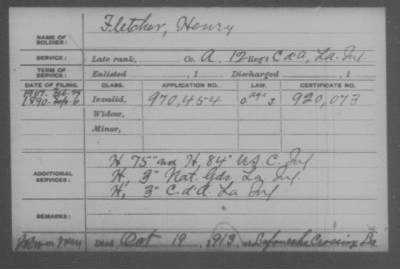 NAME OF SOLDIER: Fletcher, Henry
SERVICE: Late rank, Co. A, 12 Reg't C d'A, La. Inf
TERM OF SERVICE: Enlisted , 1 Discharged , 1
DATE OF FILING. CLASS. APPLICATION NO. LAW. CERTIFICATE NO.
1890 Invalid, 970,454 920,073
Widow,
Minor,
ADDITIONAL SERVICES: H, 75" and H, 84" U.S. C. Inf
H, 3" Nat. Gds, La Inf
H, 3" C. d'A. La Inf
REMARKS:
Died Oct 19, 1913, at Lafourche Crossing La